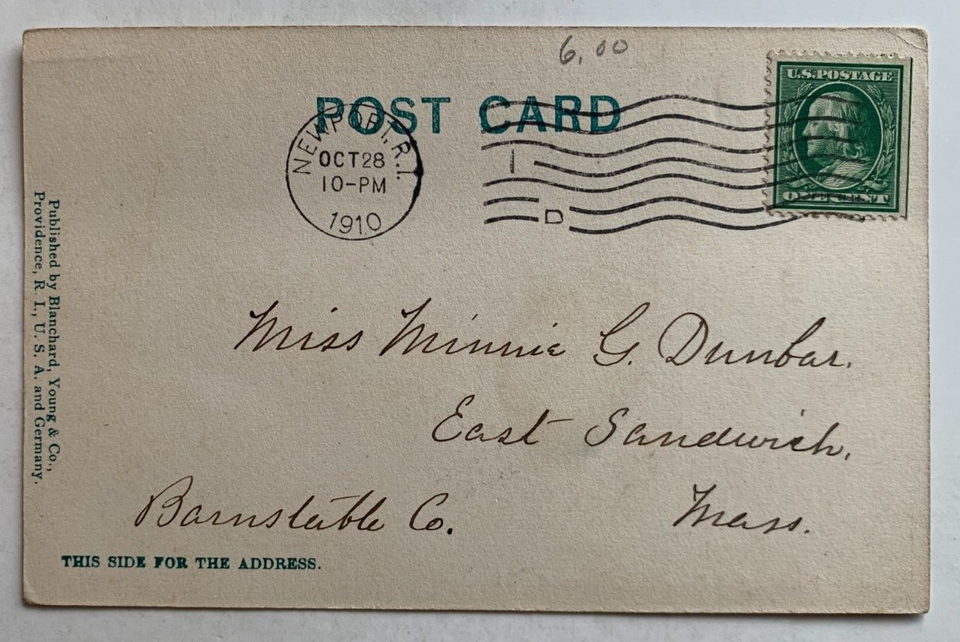 6.00
POST CARD
U.S. POSTAGE
ONE CENT
NEWPORT, R.I.
OCT 28
10-PM
1910
1
D
Miss Minnie G. Dunbar.
East Sandwich,
Barnstable Co. Mass.
THIS SIDE FOR THE ADDRESS.
Published by Blanchard, Young & Co.,
Providence, R. I., U. S. A. and Germany.